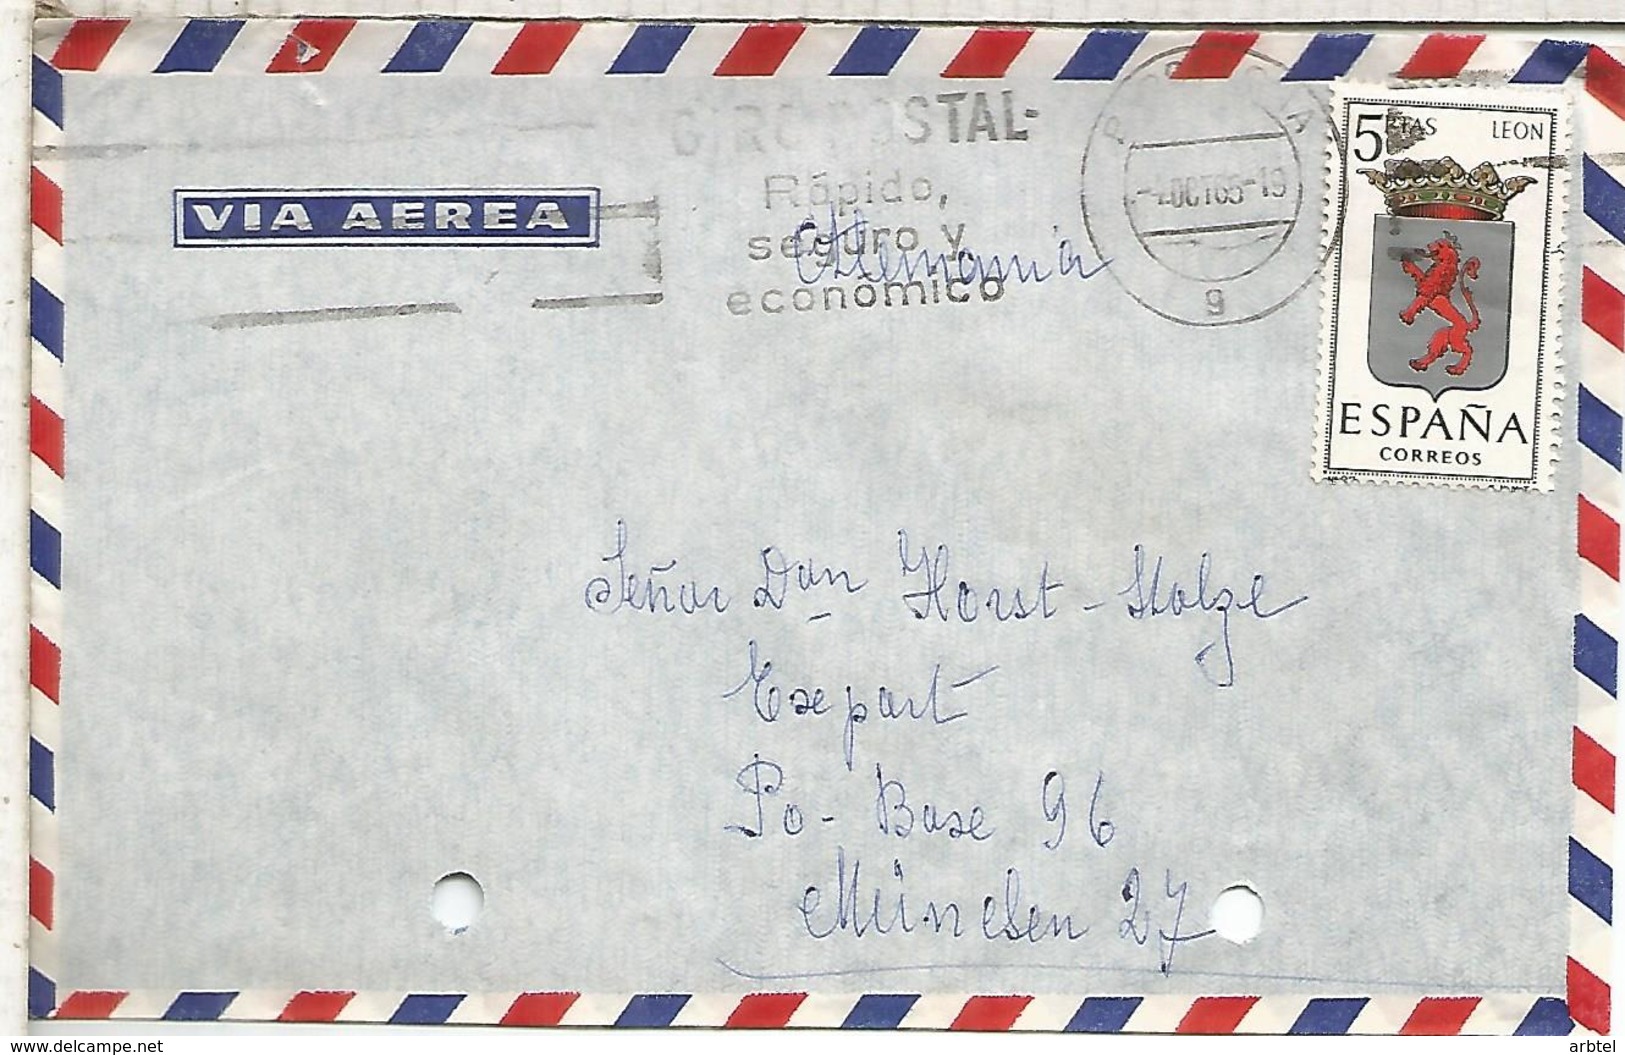 VIA AEREA
GIRO POSTAL-
Rápido,
seguro y
económico
Alemania
-4.OCT65-19
g
5 PTAS LEON
ESPAÑA
CORREOS
Señor Don Horst-Stolze
Export
Po-Boxe 96
München 27
www.delcampe.net
arbtel